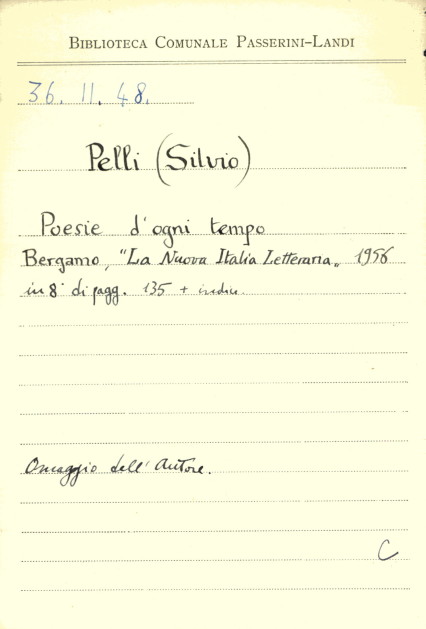 BIBLIOTECA COMUNALE PASSERINI-LANDI
36. II. 48.
Pelli (Silvio)
Poesie d'ogni tempo
Bergamo, "La Nuova Italia Letteraria„ 1956
in 8° di pagg. 135 + indice.
Omaggio dell'Autore.
C